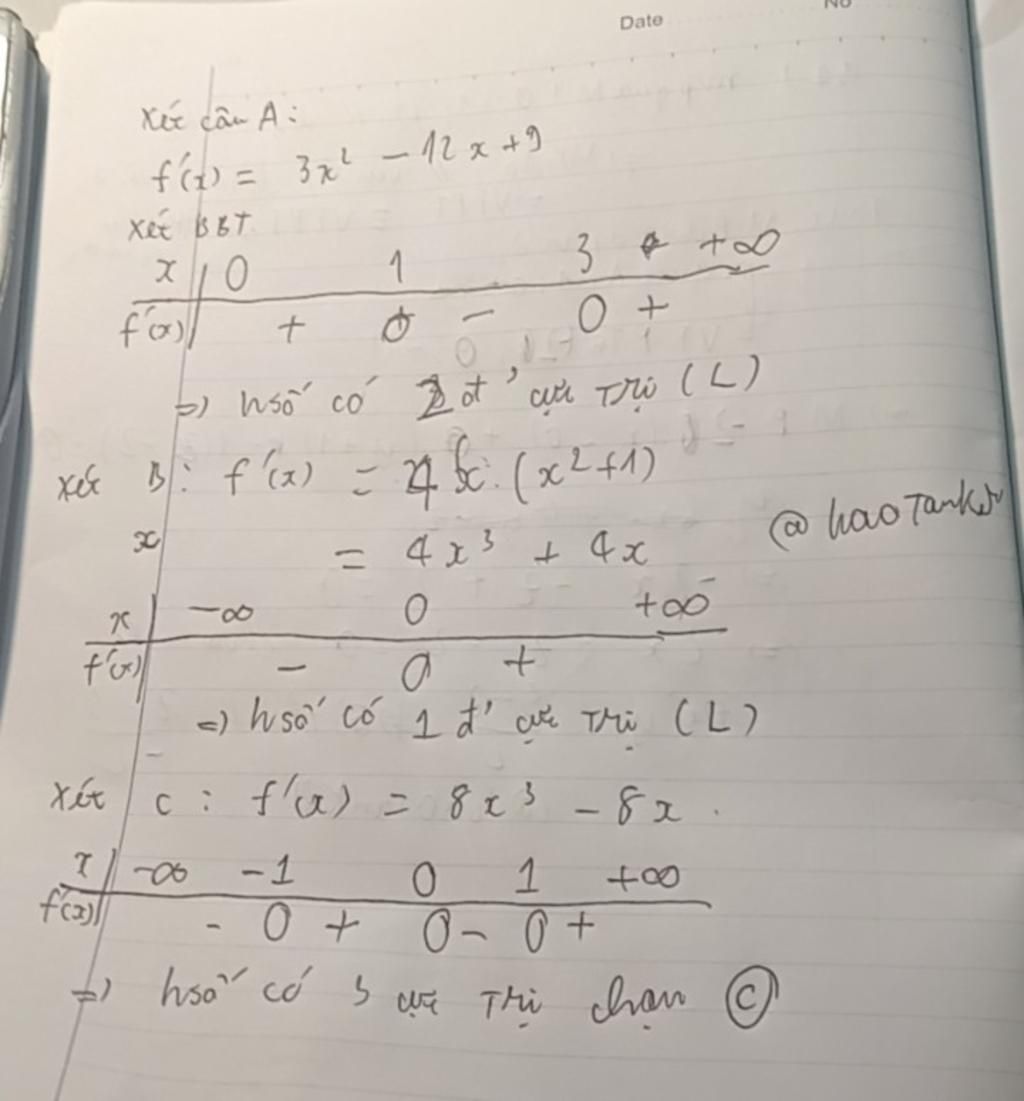 Date No
Xét câu A:
f'(x) = 3x² - 12x + 9
Xét BBT
x 0 1 3 +∞
f'(x) + 0 - 0 +
=> hsố có 2 đ' cực trị (L)
Xét B: f'(x) = 4x.(x²+1)
x = 4x³ + 4x
@haoTanker
x -∞ 0 +∞
f'(x) - 0 +
=> hsố có 1 đ' cực trị (L)
Xét C: f'(x) = 8x³ - 8x.
x -∞ -1 0 1 +∞
f'(x) - 0 + 0 - 0 +
=> hsố có 3 cực trị chọn C